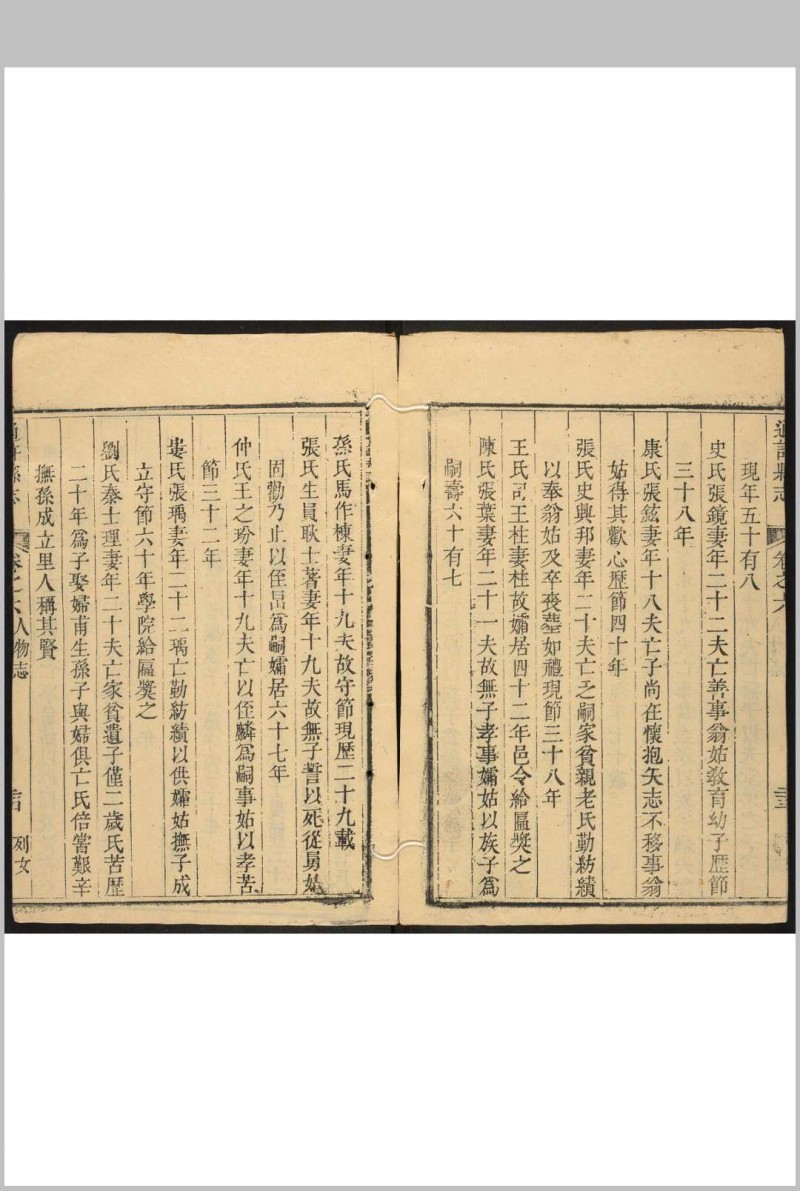 通許縣志
卷之六
現年五十有八
史氏張鏡妻年二十二夫亡善事翁姑敎育幼子歷節
三十八年
康氏張鉉妻年十八夫亡子尚在懷抱矢志不移事翁
姑得其歡心歷節四十年
張氏史興邦妻年二十夫亡乏嗣家貧親老氏勤紡績
以奉翁姑及卒喪塟如禮現節三十八年
王氏司王柱妻柱故孀居四十二年邑令給匾奬之
陳氏張葉妻年二十一夫故無子孝事孀姑以族子爲
嗣壽六十有七
孫氏馬作棟妻年十九夫故守節現歷二十九載
張氏生員耿士著妻年十九夫故無子誓以死從舅姑
固勸乃止以侄昺爲嗣孀居六十七年
仲氏王之玢妻年十九夫亡以侄麟爲嗣事姑以孝苦
節三十二年
婁氏張瑀妻年二十二瑀亡勤紡績以供孀姑撫子成
立守節六十年學院給匾奬之
劉氏秦士理妻年二十夫亡家貧遺子僅二歲氏苦歷
二十年爲子娶婦甫生孫子與婦俱亡氏倍嘗艱辛
撫孫成立里人稱其賢
通許縣志
卷之六人物志
列女